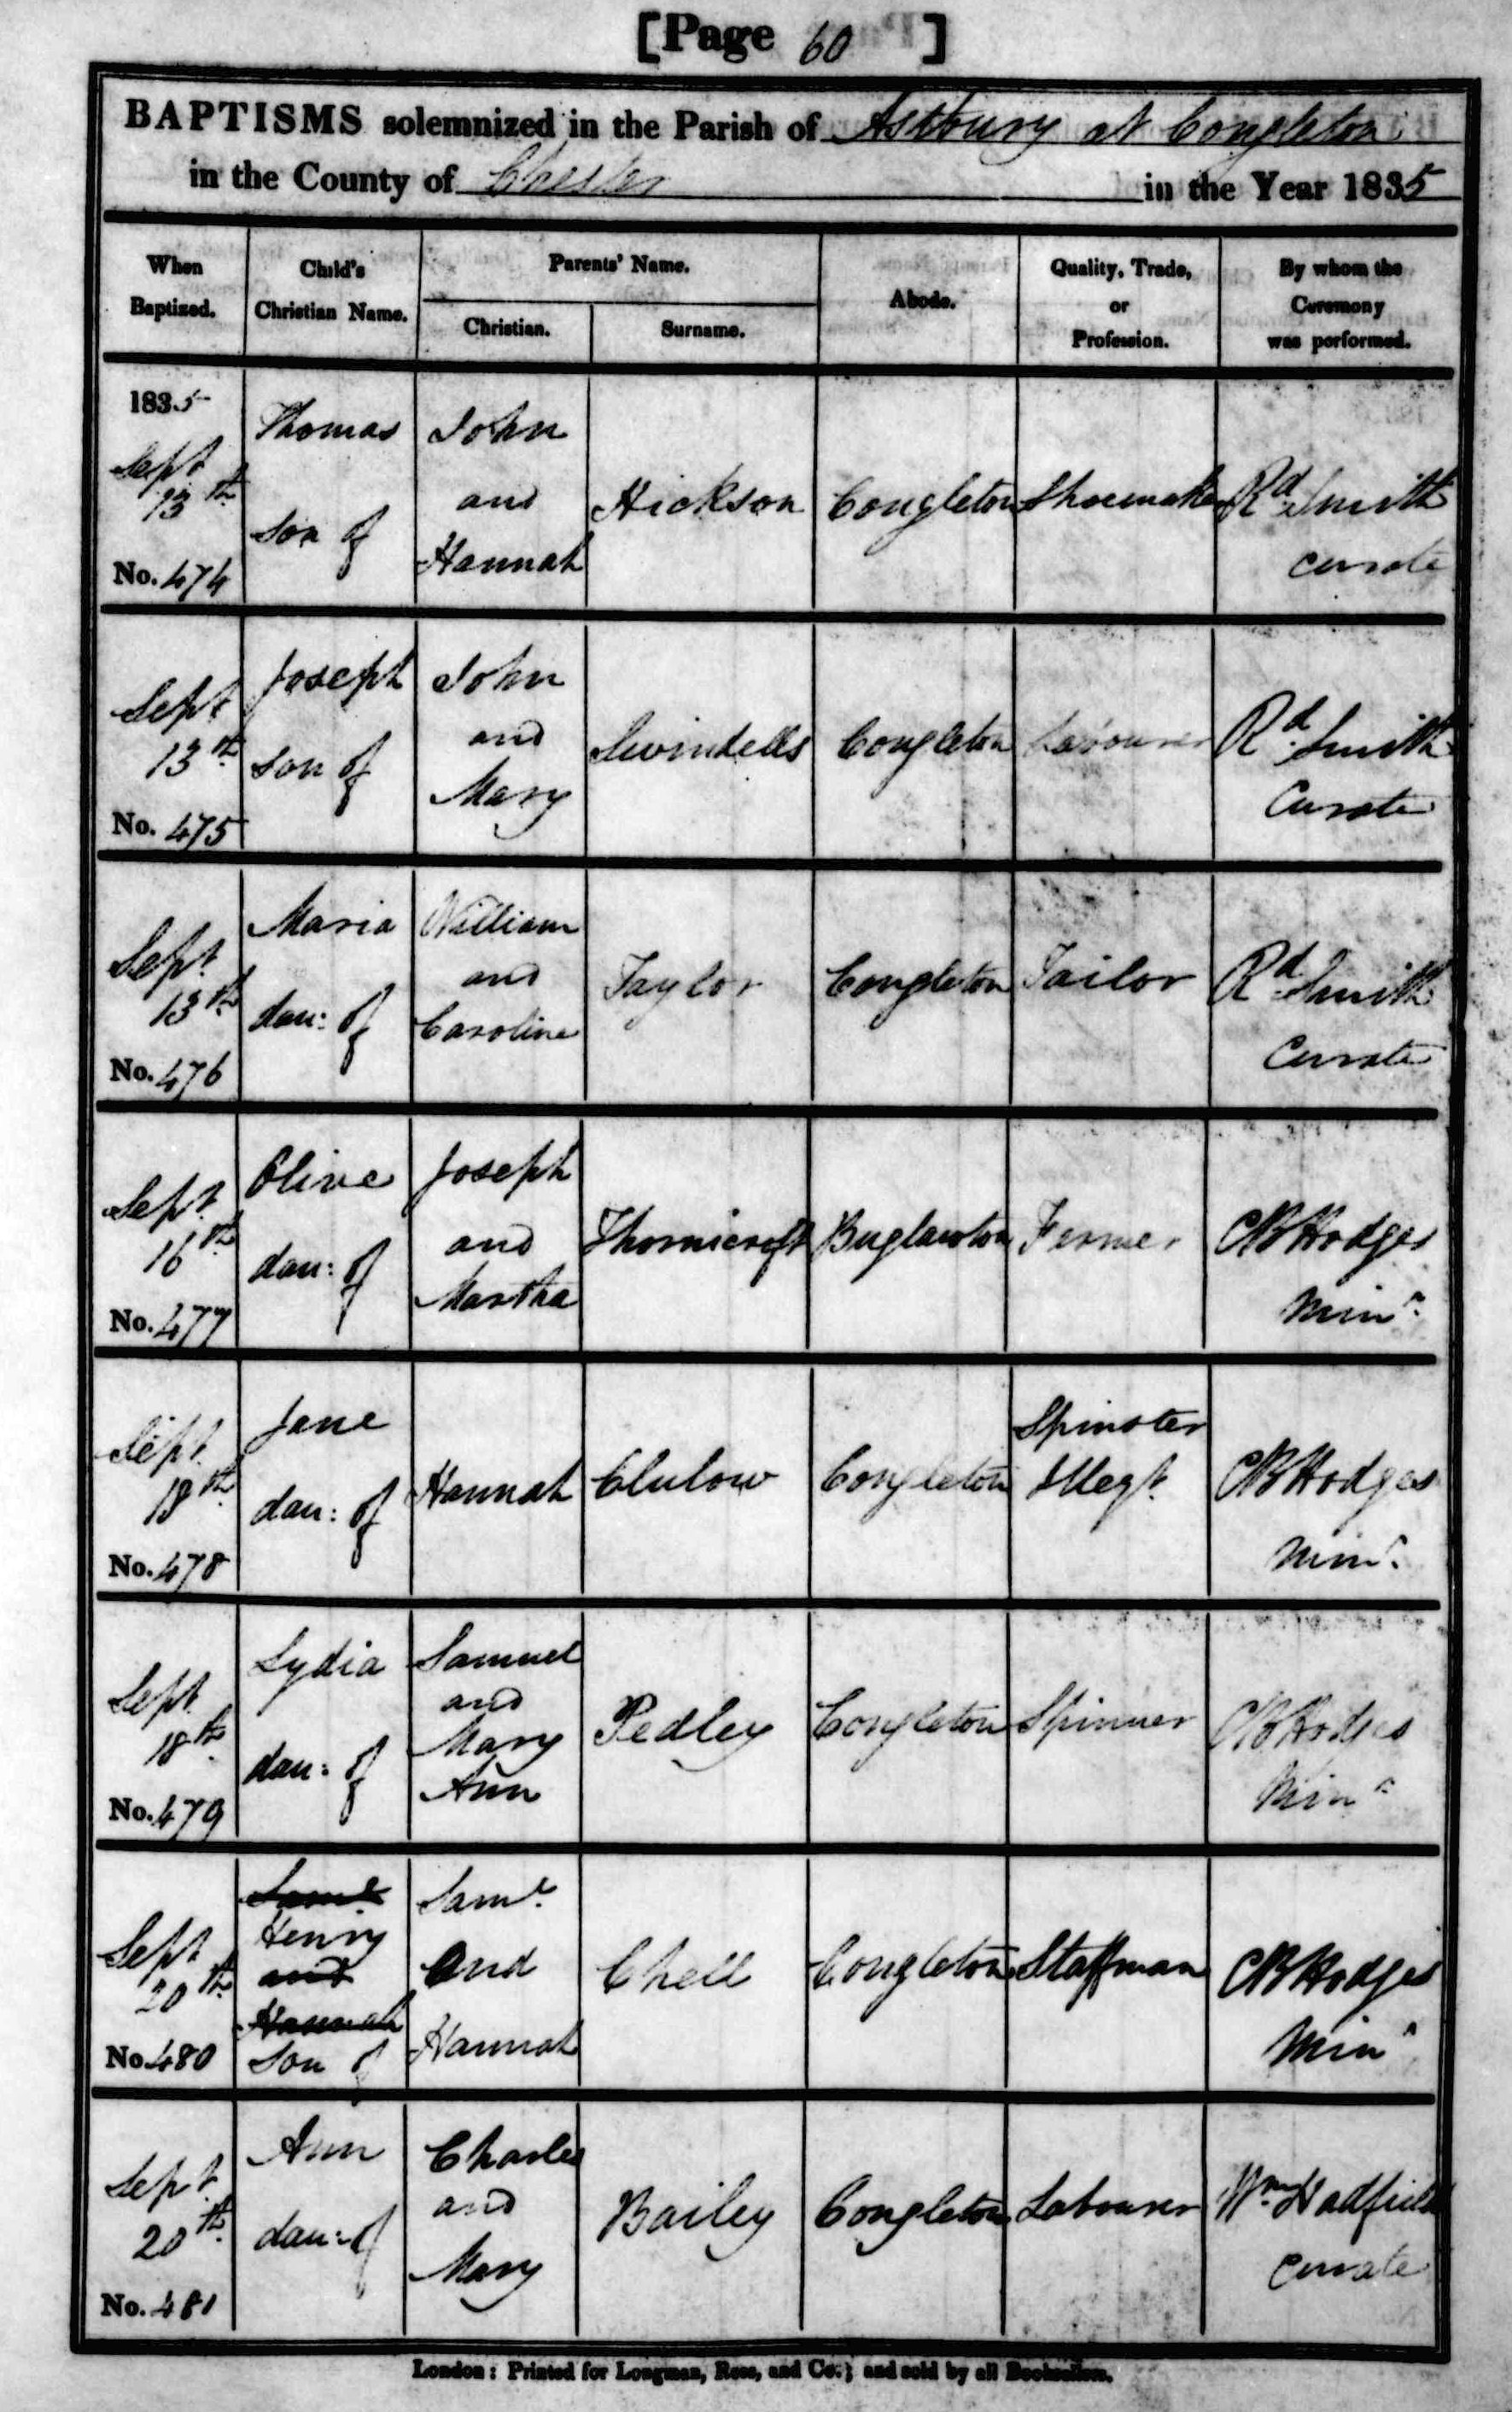 [Page 60]
BAPTISMS solemnized in the Parish of Astbury at Congleton
in the County of Chester in the Year 1835
When Baptized.
Child's Christian Name.
Parents' Name.
Christian.
Surname.
Abode.
Quality, Trade, or Profession.
By whom the Ceremony was performed.
1835
Sept
13th
No. 474
Thomas
son of
John
and
Hannah
Hickson
Congleton
Shoemaker
Rd Smith
Curate
Sept
13th
No. 475
Joseph
son of
John
and
Mary
Swindells
Congleton
Labourer
Rd Smith
Curate
Sept.
13th
No. 476
Maria
dau: of
William
and
Caroline
Taylor
Congleton
Tailor
Rd Smith
Curate
Sept.
16th
No. 477
Olive
dau: of
Joseph
and
Martha
Thornicroft
Buglawton
Farmer
CB Hodges
Minr.
Sept.
18th
No. 478
Jane
dau: of
Hannah
Clulow
Congleton
Spinster
Illegt.
CB Hodges
Minr.
Sept
18th
No. 479
Lydia
dau: of
Samuel
and
Mary
Ann
Pedley
Congleton
Spinner
CB Hodges
Minr
Sept
20th
No. 480
Saml
Henry
and
Hannah
son of
Saml.
and
Hannah
Chell
Congleton
Staffman
CB Hodges
Minr
Sept.
20th
No. 481
Ann
dau: of
Charles
and
Mary
Bailey
Congleton
Labourer
Wm Hadfield
Curate
London: Printed for Longman, Rees, and Co.; and sold by all Booksellers.